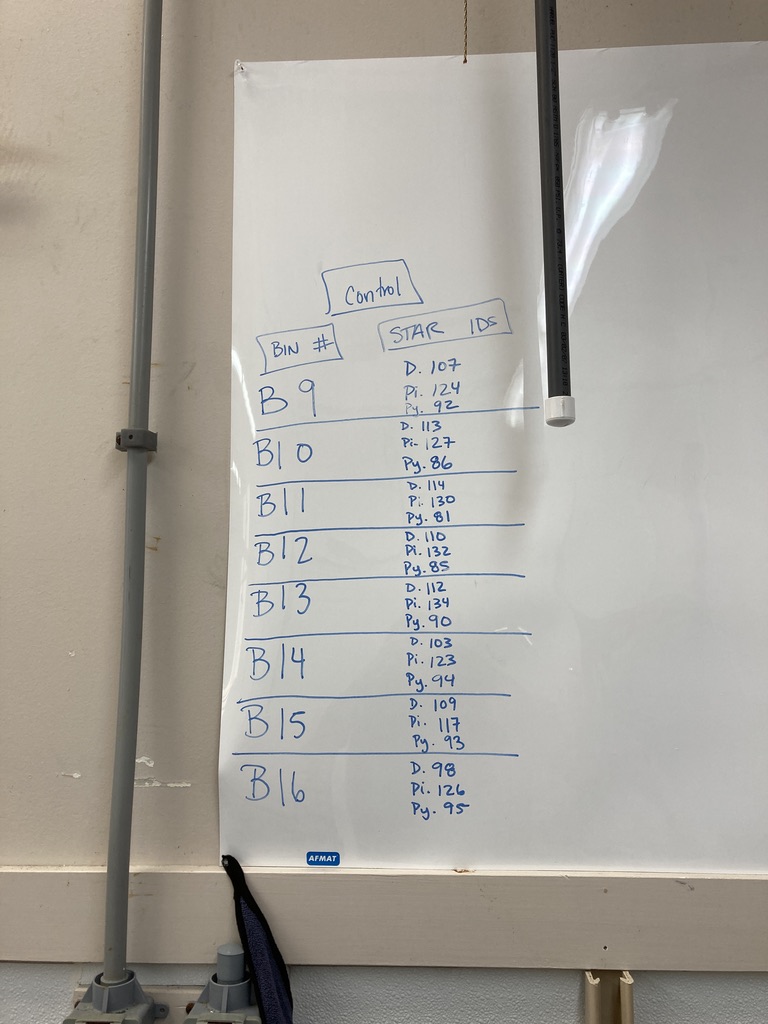 Control
BIN # STAR IDS
B9 D. 107
Pi. 124
Py. 92
B10 D. 113
Pi. 127
Py. 86
B11 D. 114
Pi. 130
Py. 81
B12 D. 110
Pi. 132
Py. 85
B13 D. 112
Pi. 134
Py. 90
B14 D. 103
Pi. 123
Py. 94
B15 D. 109
Pi. 117
Py. 93
B16 D. 98
Pi. 126
Py. 95
AFMAT